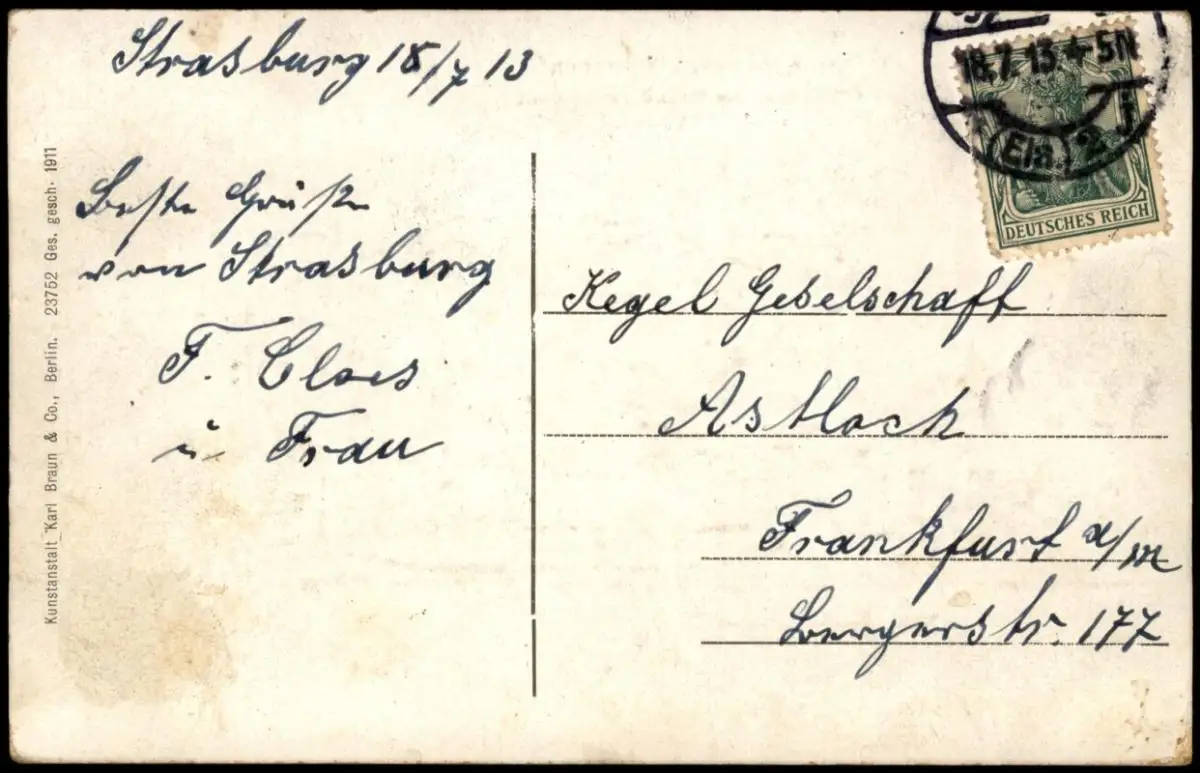 Strasburg 18/7 13
Beste Grüße
von Strasburg
F. Cloes
u Frau
18.7.13.4-5N
(Els.) 2
DEUTSCHES REICH
Kegel Geselschaft
Astloch
Frankfurt a/m
Bergerstr. 177
Kunstanstalt Karl Braun & Co., Berlin. 23752 Ges. gesch. 1911